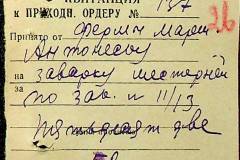 КВИТАНЦИЯ
К ПРИХОДН. ОРДЕРУ № 137
26
Принято от Ферми Марии
Антонеску
на заварку шестерней
по зав. н 11/13
Пятьдесят две